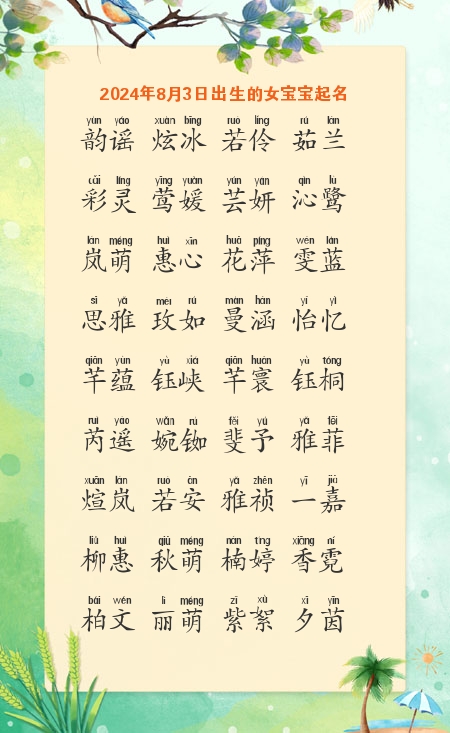 2024年8月3日出生的女宝宝起名
yùn yáo xuàn bīng ruò líng rú lán
韵谣 炫冰 若伶 茹兰
cǎi líng yīng yuàn yún yán qìn lù
彩灵 莺媛 芸妍 沁鹭
lán méng huì xīn huā píng wén lán
岚萌 惠心 花萍 雯蓝
sī yǎ méi rú màn hán yí yì
思雅 玫如 曼涵 怡忆
qiān yùn yù xiá qiān huán yù tóng
芊蕴 钰峡 芊寰 钰桐
ruì yáo wǎn rú fěi yú yǎ fēi
芮遥 婉铷 斐予 雅菲
xuān lán ruò ān yǎ zhēn yī jiā
煊岚 若安 雅祯 一嘉
liǔ huì qiū méng nán tíng xiāng ní
柳惠 秋萌 楠婷 香霓
bǎi wén lì méng zǐ xù xī yīn
柏文 丽萌 紫絮 夕茵